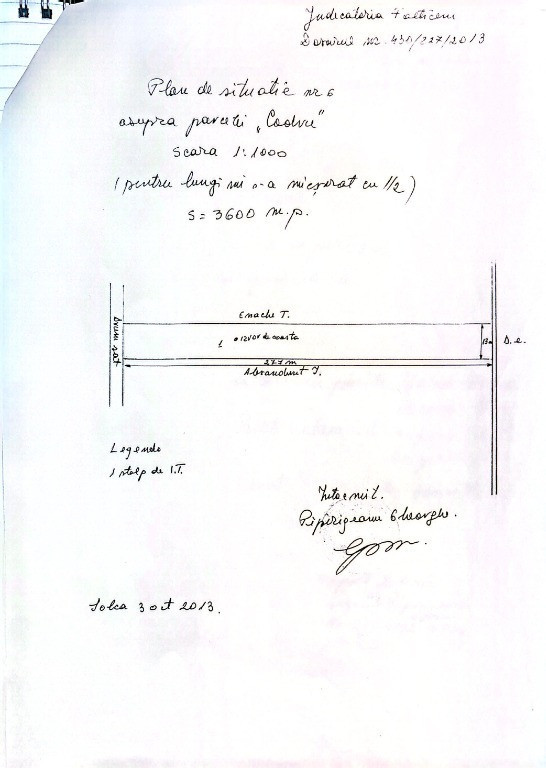 Judecatoria Falticeni
Dosarul nr. 430/227/2013
Plan de situatie nr 6
asupra parcelei „Codru"
Scara 1:1000
(pentru lungimi s-a micșorat cu 1/2)
S = 3600 m.p.
Enache T.
Drum sat
1
izvor de coasta
13
D.e.
277 m
I.
Legenda
1 stalp de I.T.
Intocmit.
Pipirigeanu Gheorghe.
Solca 3 oct 2013.